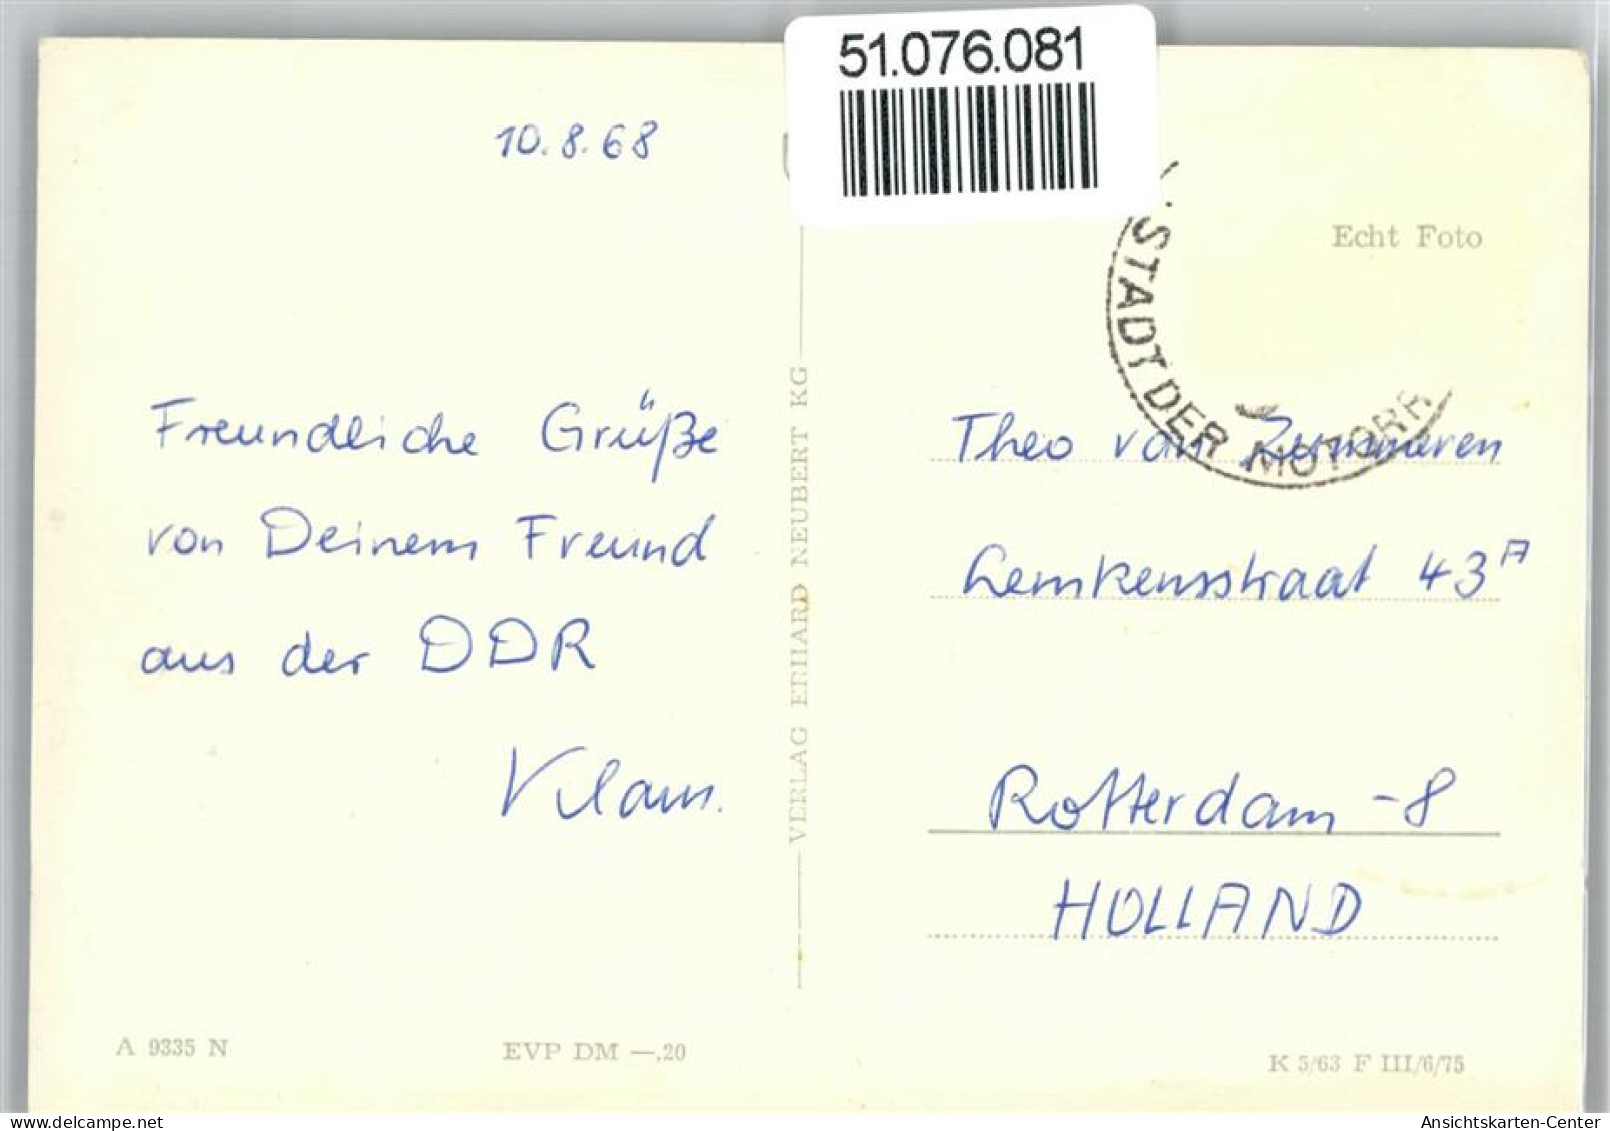 51.076.081
10.8.68
Echt Foto
STADT DER MOTORR
Freundliche Grüße
von Deinem Freund
aus der DDR
Klaus.
VERLAG ERHARD NEUBERT KG
Theo van
Lemkensstraat 43A
Rotterdam -8
HOLLAND
A 9335 N
EVP DM —,20
K 5/63 F III/6/75
AnsichtsKarten-Center